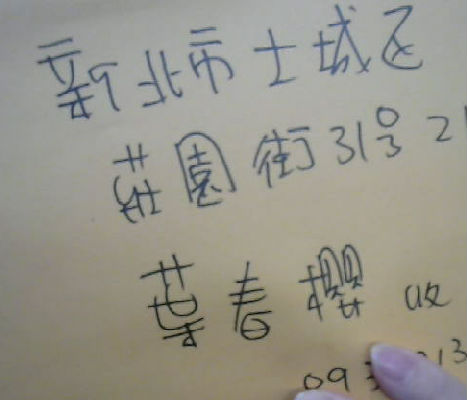 新北市土城区
莊園街31号 2
葉春櫻 收
09